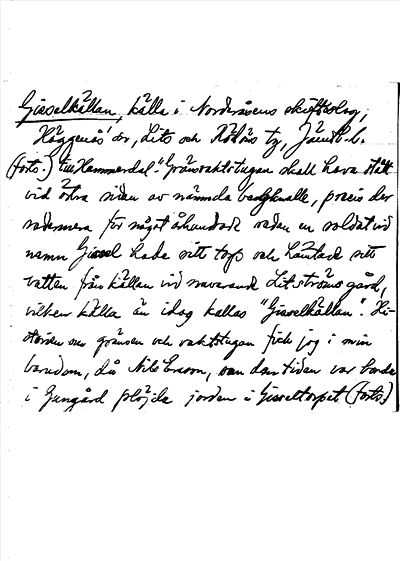 Gisselkällan, källa i Norderåsens skifteslag,
Häggenås' sn, Lits och Rödöns tg, Jämtl. l.
(forts.) till Hammerdal." Gränsvaktstugan skall hava stått
vid östra sidan av nämnda bergknalle, precis där
sedermera för något århundrade sedan en soldat vid
namn Gissel hade sitt torp och hämtade sitt
vatten från källan vid nuvarande Litströms gård,
vilken källa än idag kallas "Gisselkällan". Hi-
storien om gränsen och vaktstugan fick jag i min
barndom, då Nils Ersson, som dåmtiden var bonde
i Gungård plöjde jorden i Gisseltorpet (forts.)